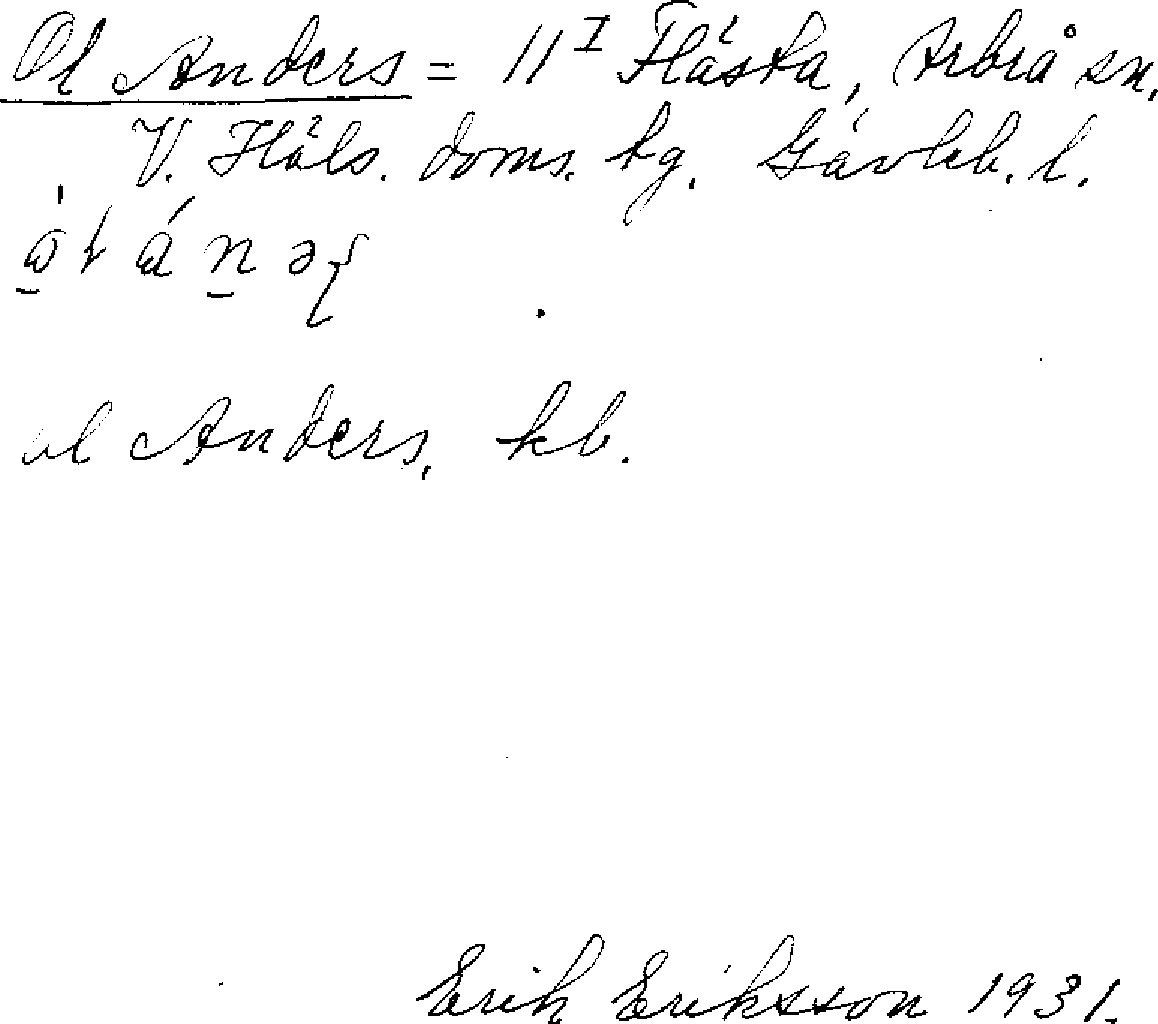 Ol Anders = 11 I Flästa, Arbrå sn,
V. Häls. doms. tg. Gävleb. l.
ol Anders, kb.
Erik Eriksson 1931.